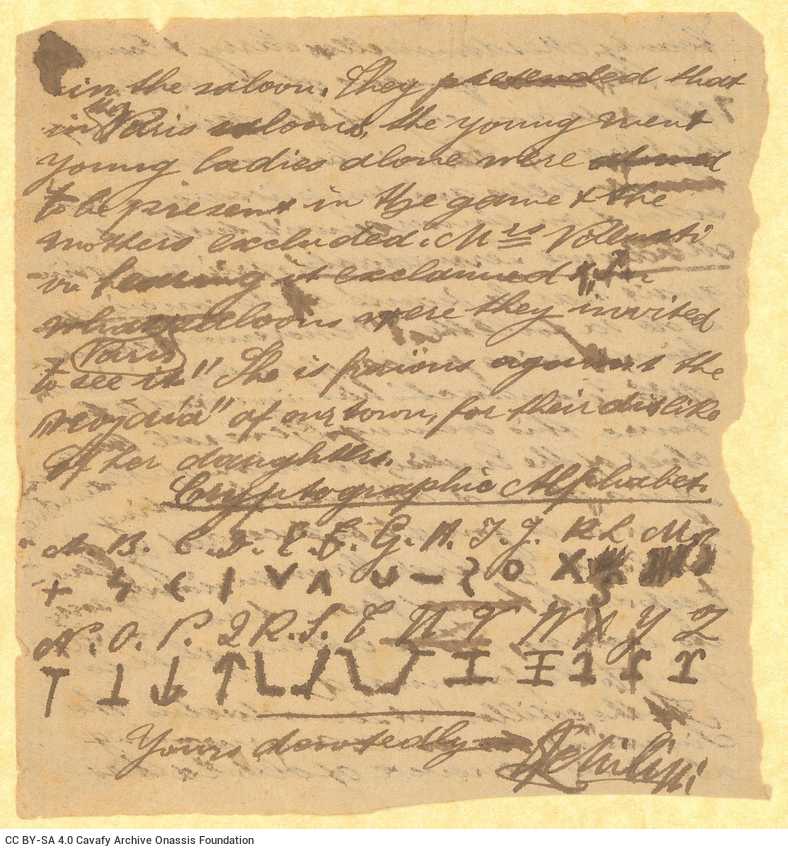 in the saloon. They pretended that
in the Paris saloons, the young went
young ladies alone were
to be present in the game & the
mothers excluded. Mrs
in it exclaimed "In
what saloons were they invited
Paris
to see it" She is furious against the
of our town, for their dislike
of her daughters.
Cryptographic Alphabet.
A. B. C. D. E. F. G. H. I. J. K L M
N. O. P. Q R. S. T U V W X Y Z
Yours devotedly
CC BY-SA 4.0 Cavafy Archive Onassis Foundation